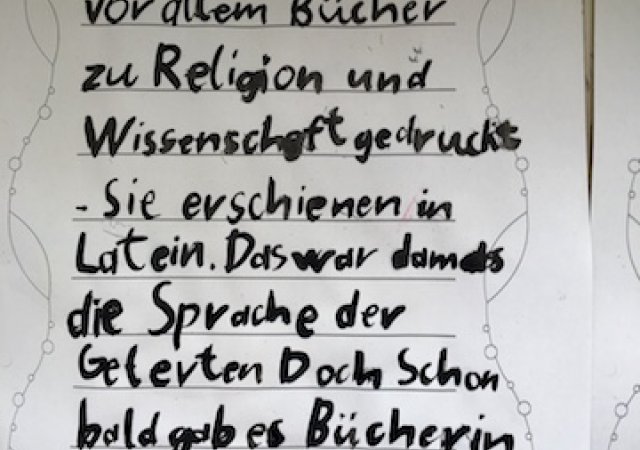 vor allem Bücher
zu Religion und
Wissenschaft gedruckt
- Sie erschienen in
Latein. Das war damals
die Sprache der
Gelerten Doch Schon
bald gab es Bücher in